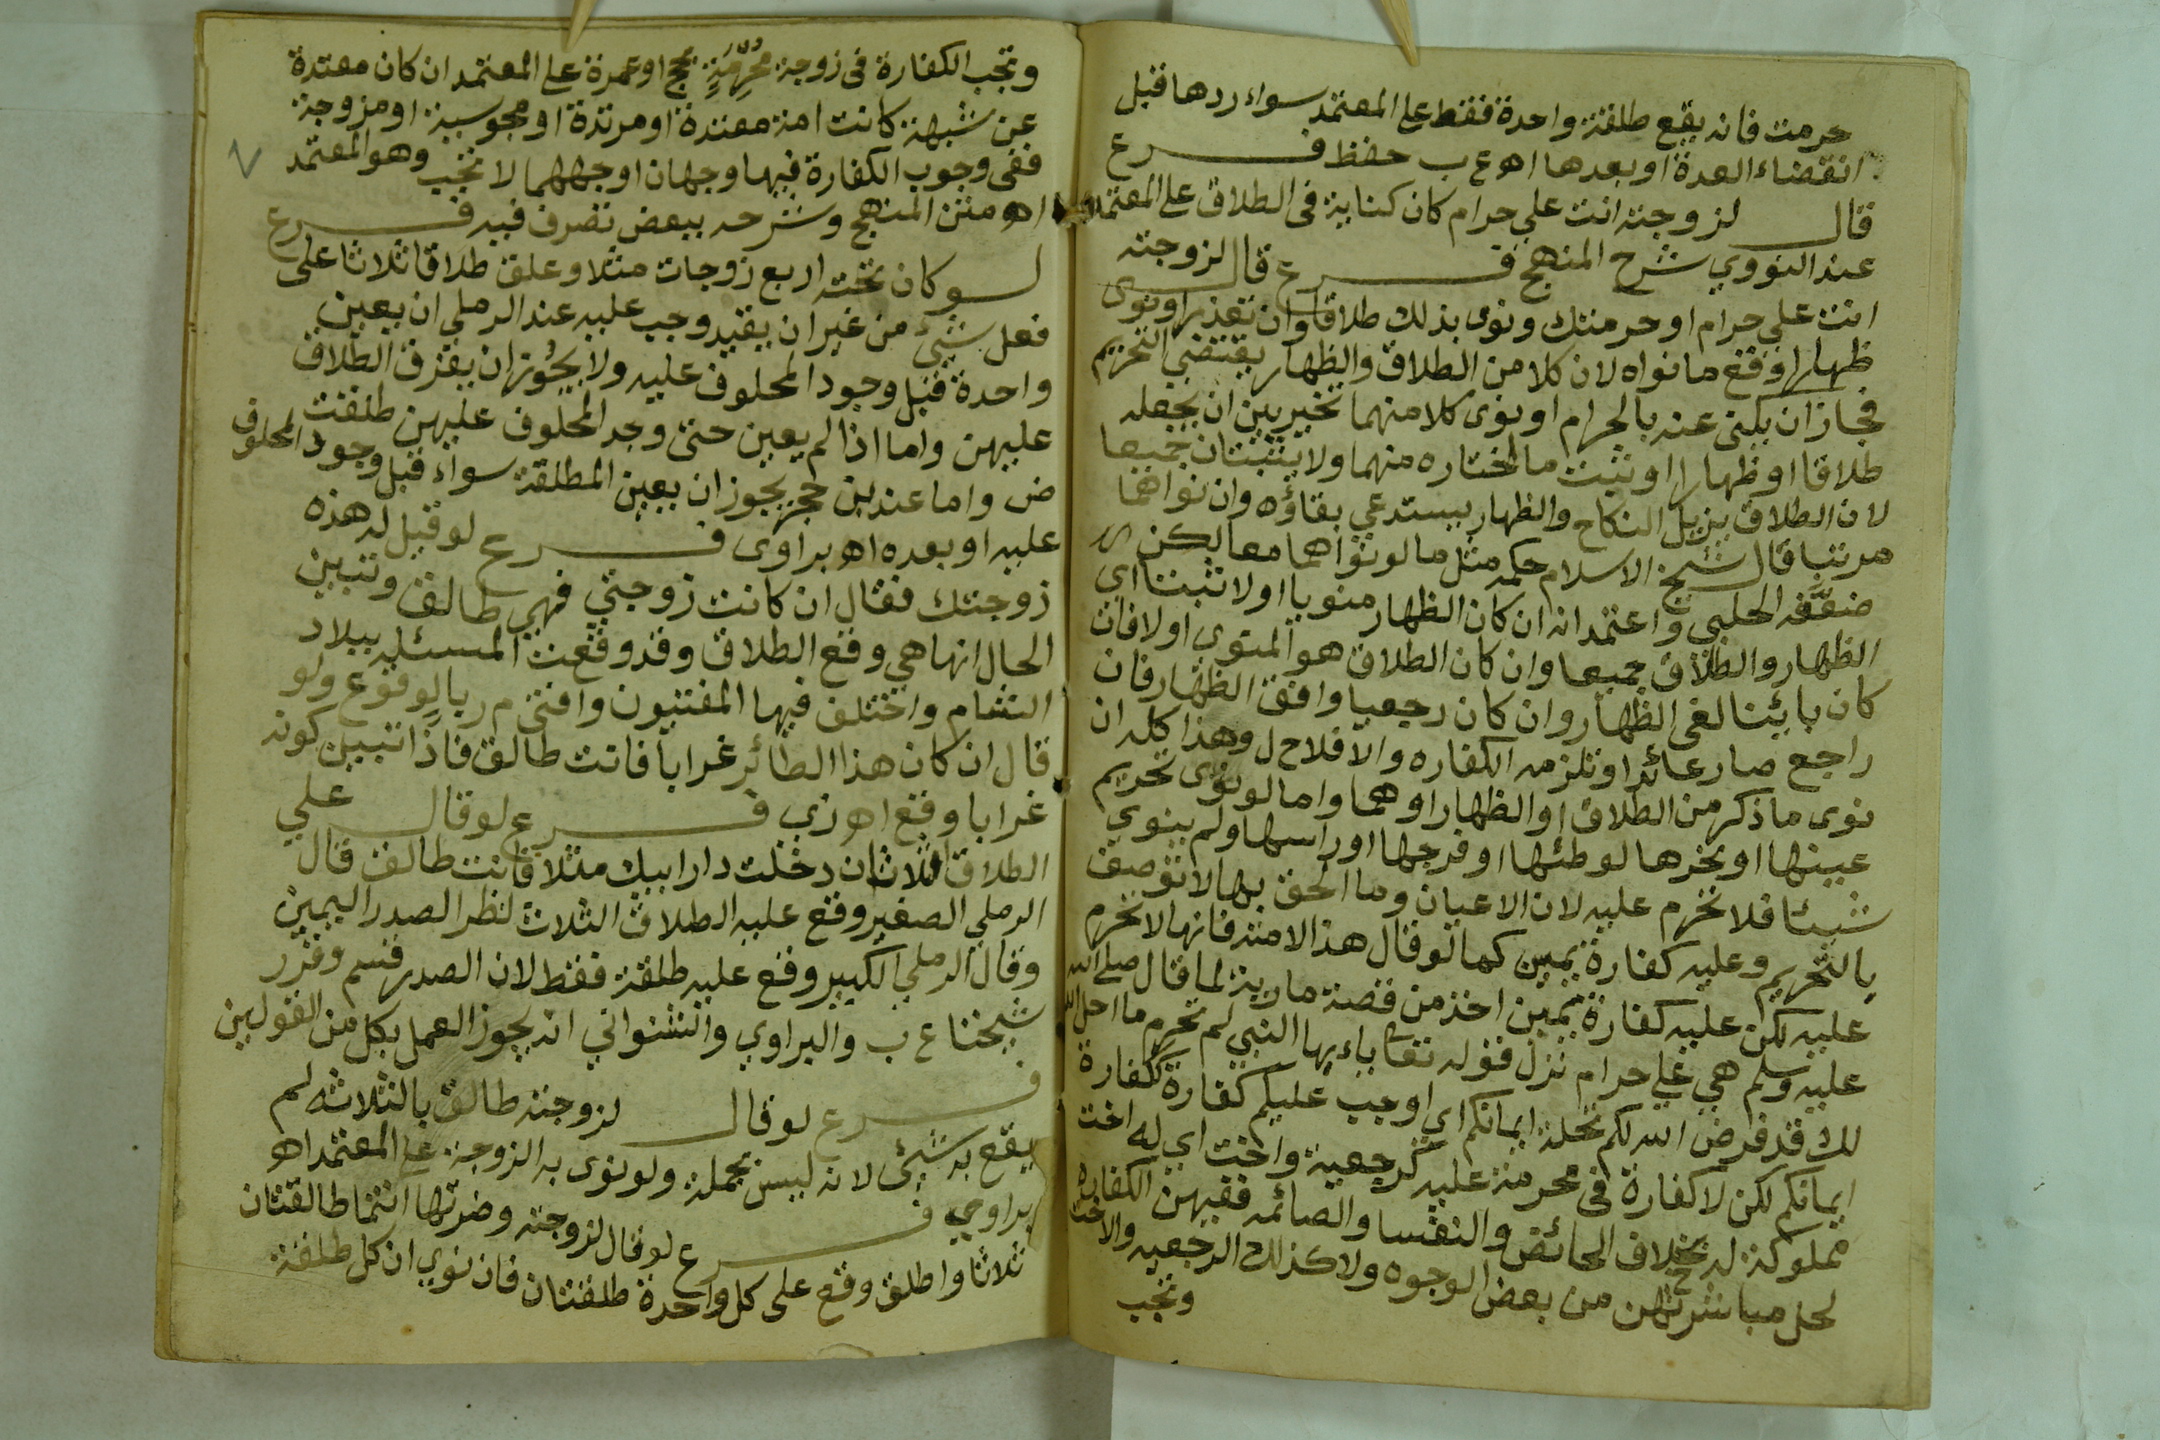 حرمت فانه يقع طلقة واحدة فقط على المعتمد سواء ردها قبل
انقضاء العدة او بعدها اهـ ع ب حفظ فرع
قال لزوجته انت علي حرام كان كناية في الطلاق على المعتمد
عند النووي شرح المنهج فرع قال لزوجته
انت علي حرام او حرمتك ونوى بذلك طلاقا وان تعدد او نوى
ظهارا وقع ما نواه لان كلا من الطلاق والظهار يقتضي التحريم
فجاز ان يكنى عنه بالحرام او نوى كلا منهما تخير بين ان يجعله
طلاقا او ظهارا او ثبت ما اختاره منهما ولا يثبتان جميعا
لان الطلاق يزيل النكاح والظهار يستدعي بقاؤه وان نواهما
مرتبا قال شيخ الاسلام حكمه مثل ما لو نواهما معا لكن
ضعفه الحلبي واعتمد انه ان كان الظهار منويا اولا ثبتا اى
الظهار والطلاق جميعا وان كان الطلاق هو المنوى اولا فان
كان بائنا لغى الظهار وان كان رجعيا وافق الظهار فان
راجع صار عائدا وتلزمه الكفاره والا فلا ح ل وهذا كله ان
نوى ما ذكر من الطلاق او الظهار او هما واما لو نوى تحريم
عينها او نحرها لوطئها او فرجها او راسها ولم ينوي
شيئا فلا تحرم عليه لان الاعيان وما الحق بها لا توصف
بالتحريم وعليه كفارة يمين كما لو قال هذا لامته فانها لا تحرم
عليه لكن عليه كفارة يمين اخذ من قصة مارية لما قال صلى الله
عليه وسلم هي علي حرام نزل قوله تعا ياءيها النبي لم تحرم ما احل الله
لك قد فرض الله لكم تحلة ايمانكم اي اوجب عليكم كفارة ككفارة
ايمانكم لكن لا كفارة في محرمة عليه كرجعية واخت اي له اخت
مملوكة له بخلاف الحائض والنفسا والصائمه ففيهن الكفاره
لحل مباشرتهن من بعض الوجوه ولا كذلك الرجعيه والاخت
وتجب
وتجب الكفارة في زوجة مُحْرِمَةٍ بحج او عمرة على المعتمد ان كان معتدة
عن شبهة كانت امة معتدة او مرتدة او مجوسية او مزوجة
ففي وجوب الكفارة فيها وجهان اوجههما لا تجب وهو المعتمد
اهـ متن المنهج وشرحه ببعض تصرف فيه فرع
لو كان تحته اربع زوجات مثلا وعلق طلاقا ثلاثا على
فعل شيئ من غير ان يقيد وجب عليه عند الرملي ان يعين
واحدة قبل وجود المحلوف عليه ولا يجُوز ان يفرق الطلاق
عليهن واما اذا لم يعين حتى وجد المحلوف عليهن طلقت
ض واما عند بن حجر يجوز ان يعين المطلقة سواء قبل وجود المحلوف
عليه او بعده اهـ براوى فرع لو قيل له هذه
زوجتك فقال ان كانت زوجتي فهي طالق وتبين
الحال انها هي وقع الطلاق وقد وقعت المسئله ببلاد
الشام واختلف فيها المفتيون وافتى م ر بالوقوع ولو
قال ان كان هذا الطائر غرابا فانت طالق فاذا تبين كونه
غرابا وقع اهـ زى فرع لو قال علي
الطلاق الثلاث ان دخلت دار ابيك مثلا فانت طالق قال
الرملي الصغير وقع عليه الطلاق الثلاث لنظر الصدر اليمين
وقال الرملي الكبير وقع عليه طلقة فقط لان الصدر قسم وقرر
شيخنا ع ب والبراوي والشنواني انه يجوز العمل بكل من القولين
فرع لو قال لزوجته طالق بالثلاثه لم
يقع به شيئ لانه ليس بجملة ولو نوى به الزوجة على المعتمد اهـ
براوي فرع لو قال لزوجته وضرتها انتما طالقتان
ثلاثا واطلق وقع على كل واحدة طلقتان فان نوي ان كل طلقة